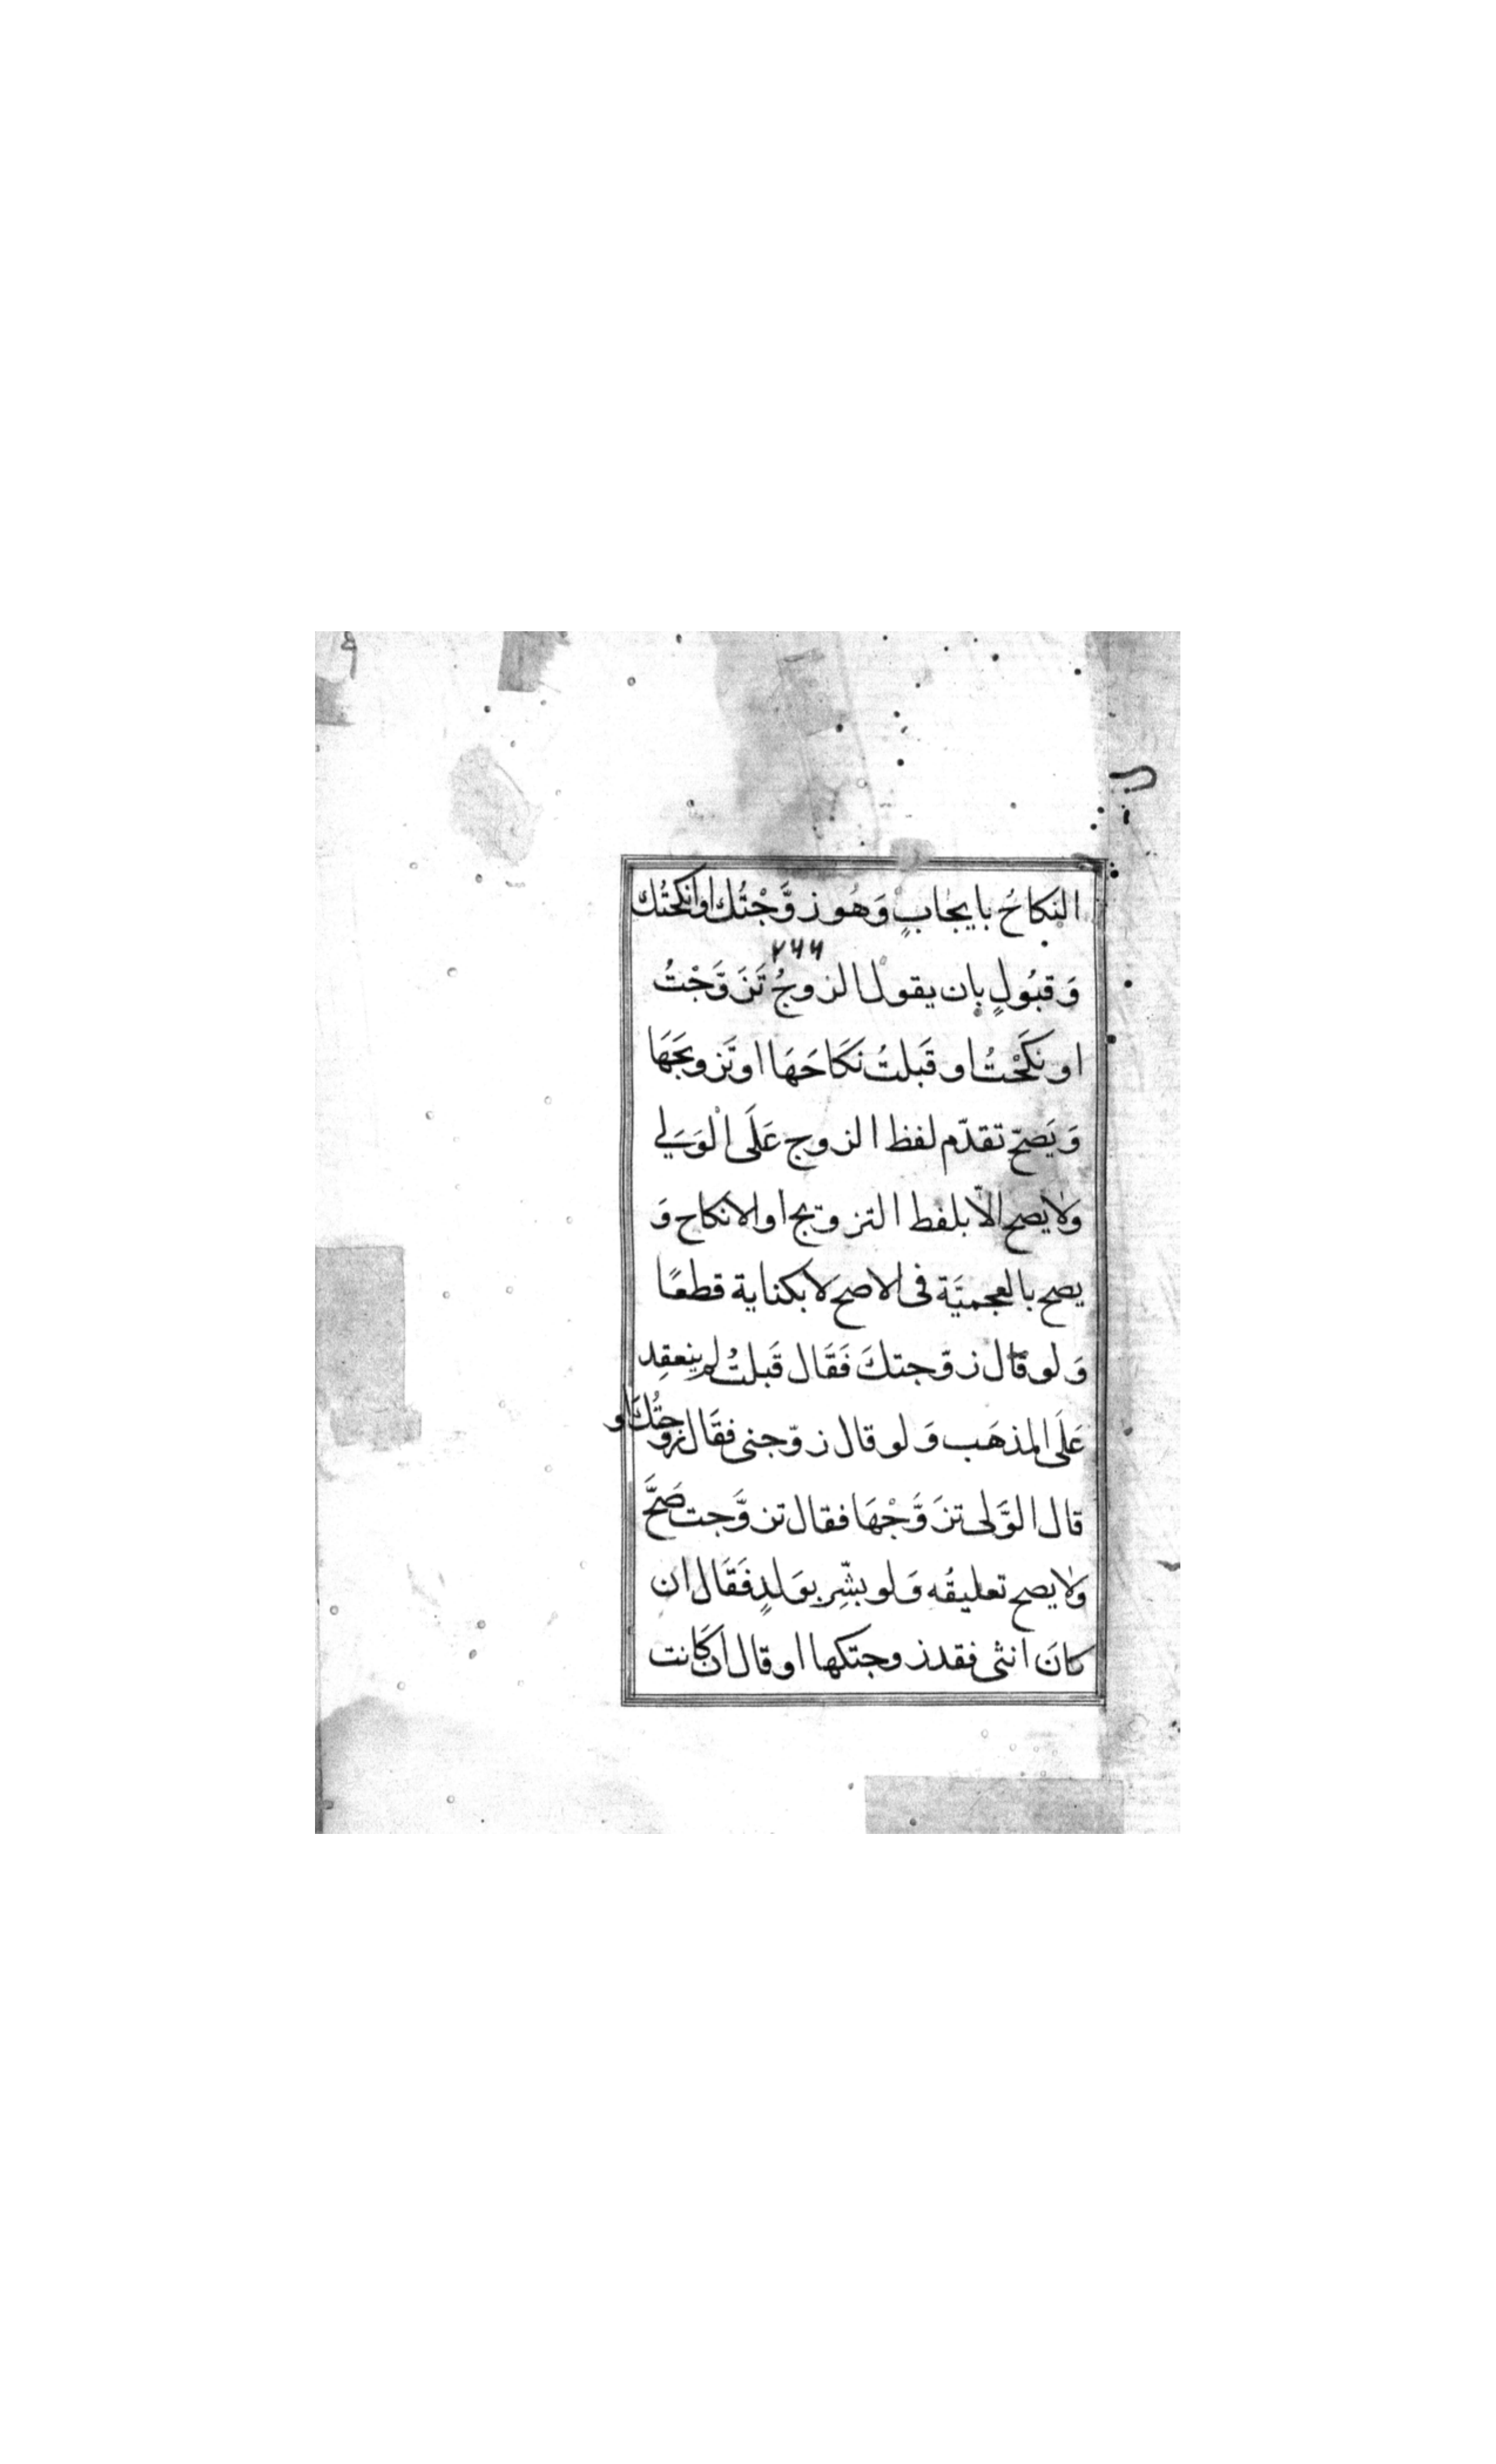 النكاحُ بايجابٍ وَهُو زوَّجْتُك او انكحتُك
وَقبُولٍ بان يقول الزوجُ تَزَوَّجْتُ
او نكَحْتُ او قَبلتُ نكَاحَهَا او تَزويجَهَا
وَيَصحّ تقدّم لفظ الزوج عَلَى الْوَلي
ولا يصح الاّ بلفظ التزويج او الانكاح وَ
يصح بالعجميَّة فى الاصح لا بكناية قطعًا
وَلو قال زوّجتكَ فَقَال قَبلتُ لم ينعقِد
عَلَى المذهَب وَلو قال زوّجنى فقَال زوجتُكَ او
قال الوَّلى تزَوَّجْهَا فقال تزوَّجت صَحَّ
ولا يصح تعليقُه وَلو بشِّر بوَلدٍ فَقَال ان
كانَ انثى فقد زوجتكها او قال ان كَانت